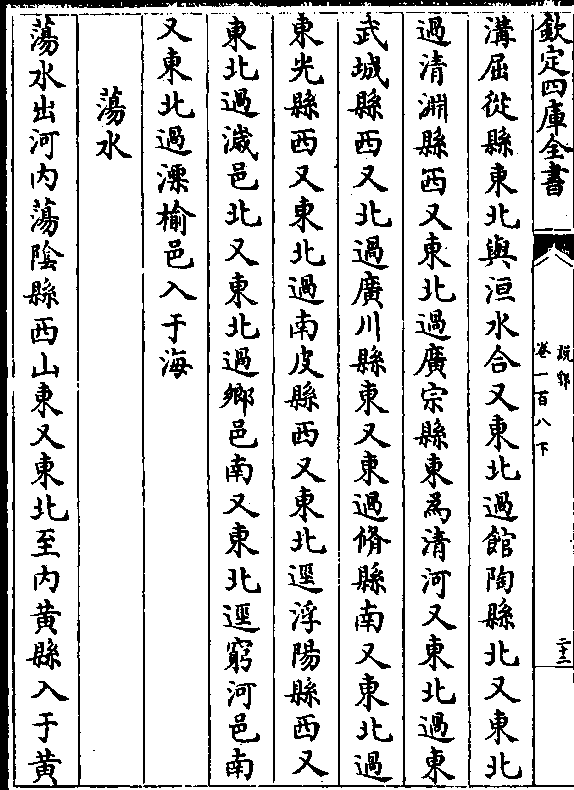 欽定四庫全書
說郛
卷一百八下
二十三
溝屈從縣東北與洹水合又東北過館陶縣北又東北
過清淵縣西又東北過廣宗縣東為清河又東北過東
武城縣西又北過廣川縣東又東過脩縣南又東北過
東光縣西又東北過南皮縣西又東北逕浮陽縣西又
東北過濊邑北又東北過鄉邑南又東北逕窮河邑南
又東北過漂榆邑入于海
蕩水
蕩水出河內蕩陰縣西山東又東北至內黃縣入于黃